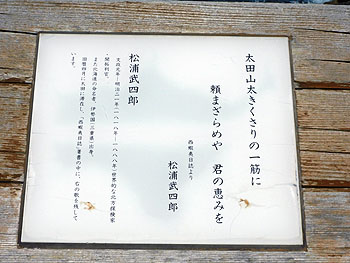 太田山太きくさりの一筋に
頼まざらめや 君の恵みを
西蝦夷日誌より
松浦武四郎
松浦武四郎
文政元年―明治二一年(一八一八―一八八八年)世界的な北方探検家
・開拓判官。
また北海道の命名者、伊勢国(三重県)出身。
旧暦四月に太田に滞在し、「西蝦夷日誌」著書の中に、右の歌を残して
います。